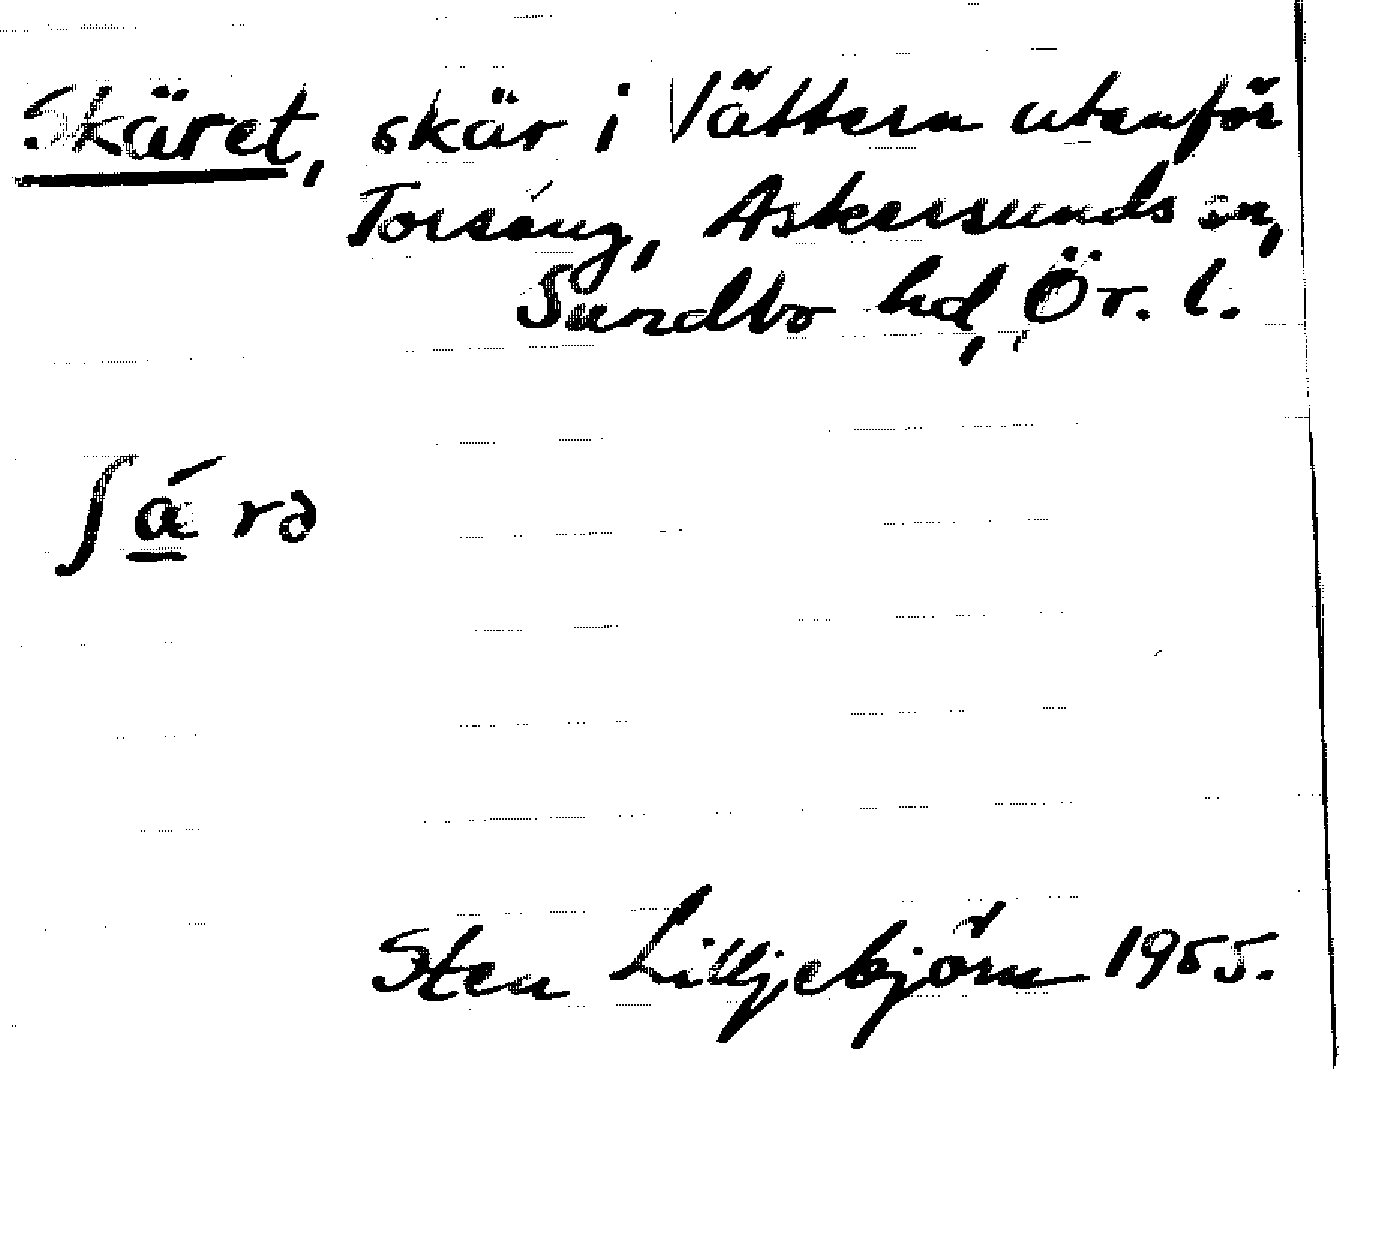 Skäret, skär i Vättern utanför
Torsäng, Askersunds sn,
Sundbo hd, Ör. l.
ʃá̱rə
Sten Lilljebjörn 1955.